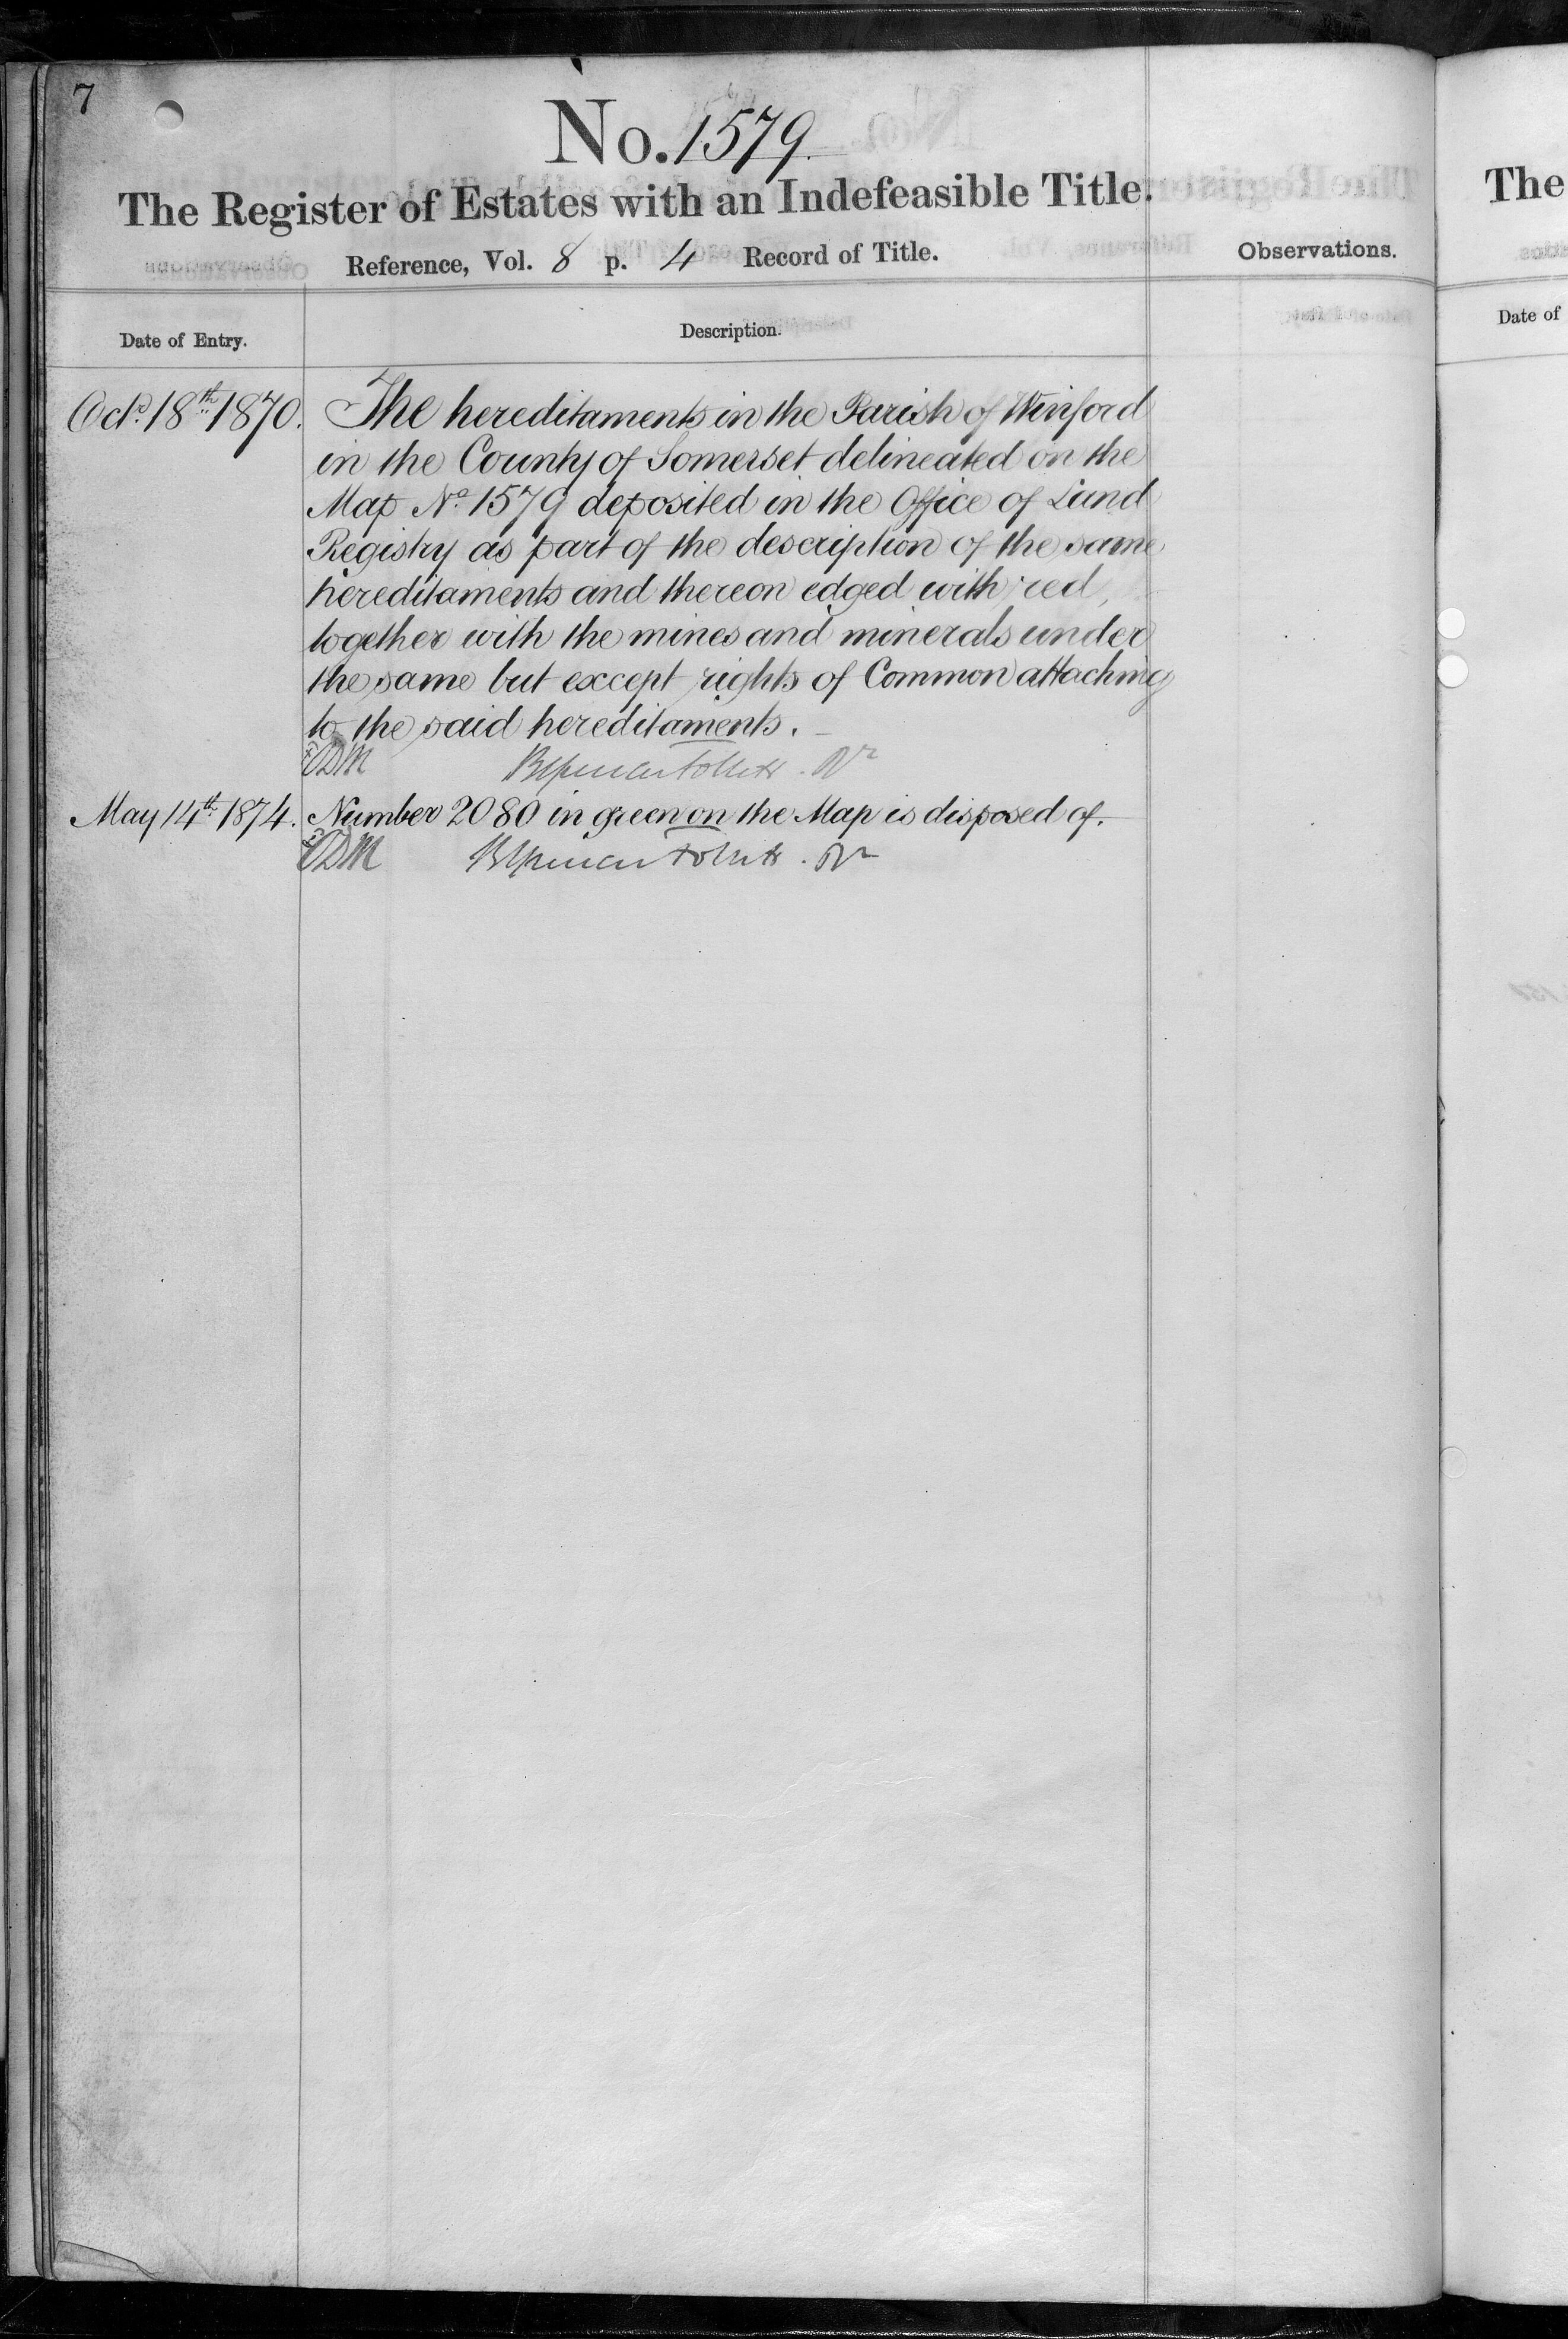 7
No. 1579.
The Register of Estates with an Indefeasible Title.
Reference, Vol. 8 p. 4 Record of Title.
Observations.
Date of Entry.
Description.
Octr. 18th 1870. The hereditaments in the Parish of Winford
in the County of Somerset delineated on the
Map No. 1579 deposited in the Office of Land
Registry as part of the description of the same
hereditaments and thereon edged with red,
together with the mines and minerals under
the same but except rights of Common attaching
to the said hereditaments.
May 14th 1874. Number 2080 in green on the Map is disposed of.
The
Date of